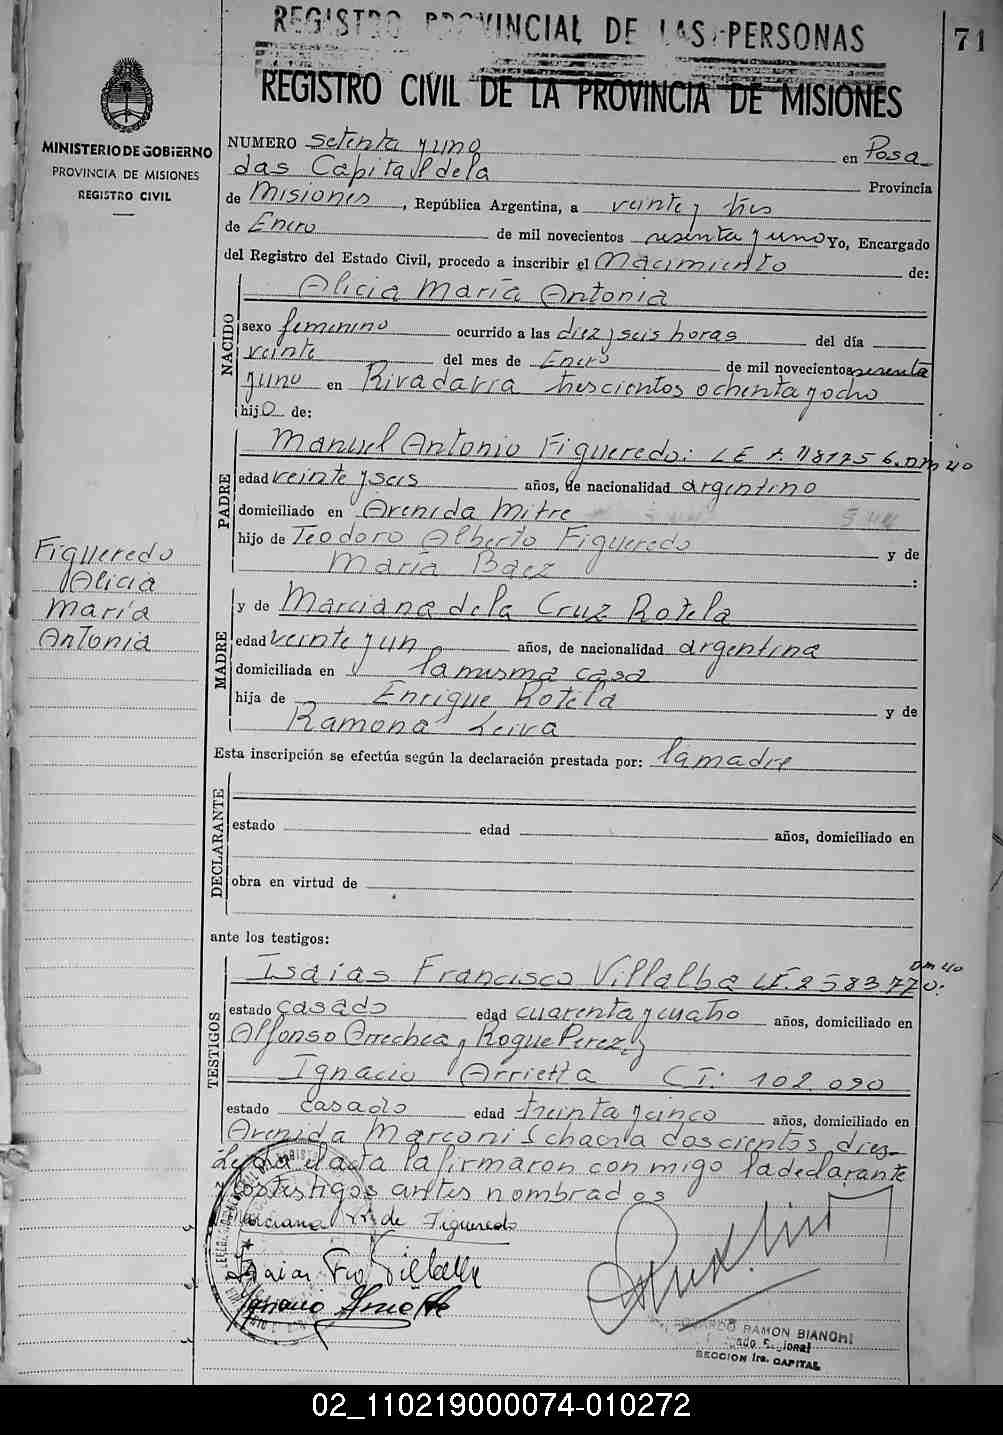 REGISTRO PROVINCIAL DE LAS PERSONAS
71
REGISTRO CIVIL DE LA PROVINCIA DE MISIONES
MINISTERIO DE GOBIERNO
PROVINCIA DE MISIONES
REGISTRO CIVIL
NUMERO setenta y uno en Posa-
das Capital de la Provincia
de Misiones, República Argentina, a veinte y tres
de Enero de mil novecientos sesenta y uno Yo, Encargado
del Registro del Estado Civil, procedo a inscribir el Nacimiento de:
NACIDO
Alicia María Antonia
sexo femenino ocurrido a las diez y seis horas del día
veinte del mes de Enero de mil novecientos sesenta
y uno en Rivadavia trescientos ochenta y ocho
hija de:
PADRE
Manuel Antonio Figueredo: LE 7.118175 6. DM 40
edad veinte y seis años, de nacionalidad argentino
domiciliado en Avenida Mitre
hijo de Teodoro Alberto Figueredo y de
María Baez :
Figueredo
Alicia
María
Antonia
MADRE
y de Marciana de la Cruz Rotela
edad veinte y un años, de nacionalidad argentina
domiciliada en la misma casa
hija de Enrique Rotela y de
Ramona Leiva
Esta inscripción se efectúa según la declaración prestada por: la madre
DECLARANTE
estado edad años, domiciliado en
obra en virtud de
ante los testigos:
TESTIGOS
Isaías Francisco Villalba LE. 2583770. DM 40
estado casado edad cuarenta y cuatro años, domiciliado en
Alfonso Arrechea y Roque Perez y
Ignacio Arrietta CI: 102.090
estado casado edad treinta y cinco años, domiciliado en
Avenida Marconi chacra doscientos diez-
Leida el acta la firmaron conmigo la declarante
los testigos antes nombrados
Marciana R. de Figueredo
Isaias Fco Villalba
Ignacio Arrietta
EDUARDO RAMON BIANCHI
SECCION 1ra. CAPITAL
02_110219000074-010272